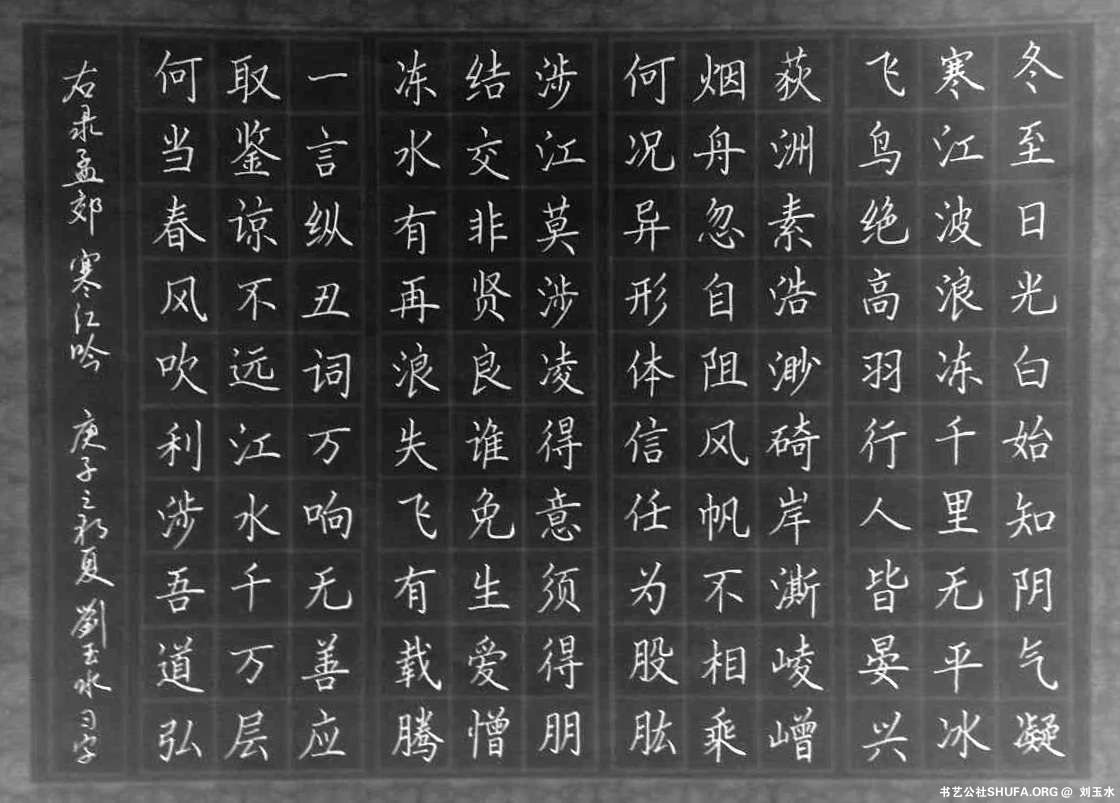 冬至日光白始知阴气凝
寒江波浪冻千里无平冰
飞鸟绝高羽行人皆晏兴
荻洲素浩渺碕岸澌崚嶒
烟舟忽自阻风帆不相乘
何况异形体信任为股肱
涉江莫涉凌得意须得朋
结交非贤良谁免生爱憎
冻水有再浪失飞有载腾
一言纵丑词万响无善应
取鉴谅不远江水千万层
何当春风吹利涉吾道弘
右录孟郊 寒江吟 庚子之初夏 劉玉水习字
书艺公社SHUFA.ORG @ 刘玉水